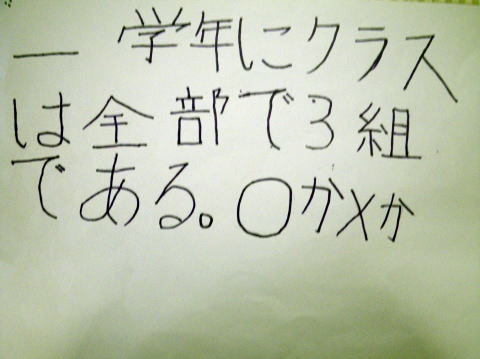 一学年にクラス
は全部で3組
である。○か×か